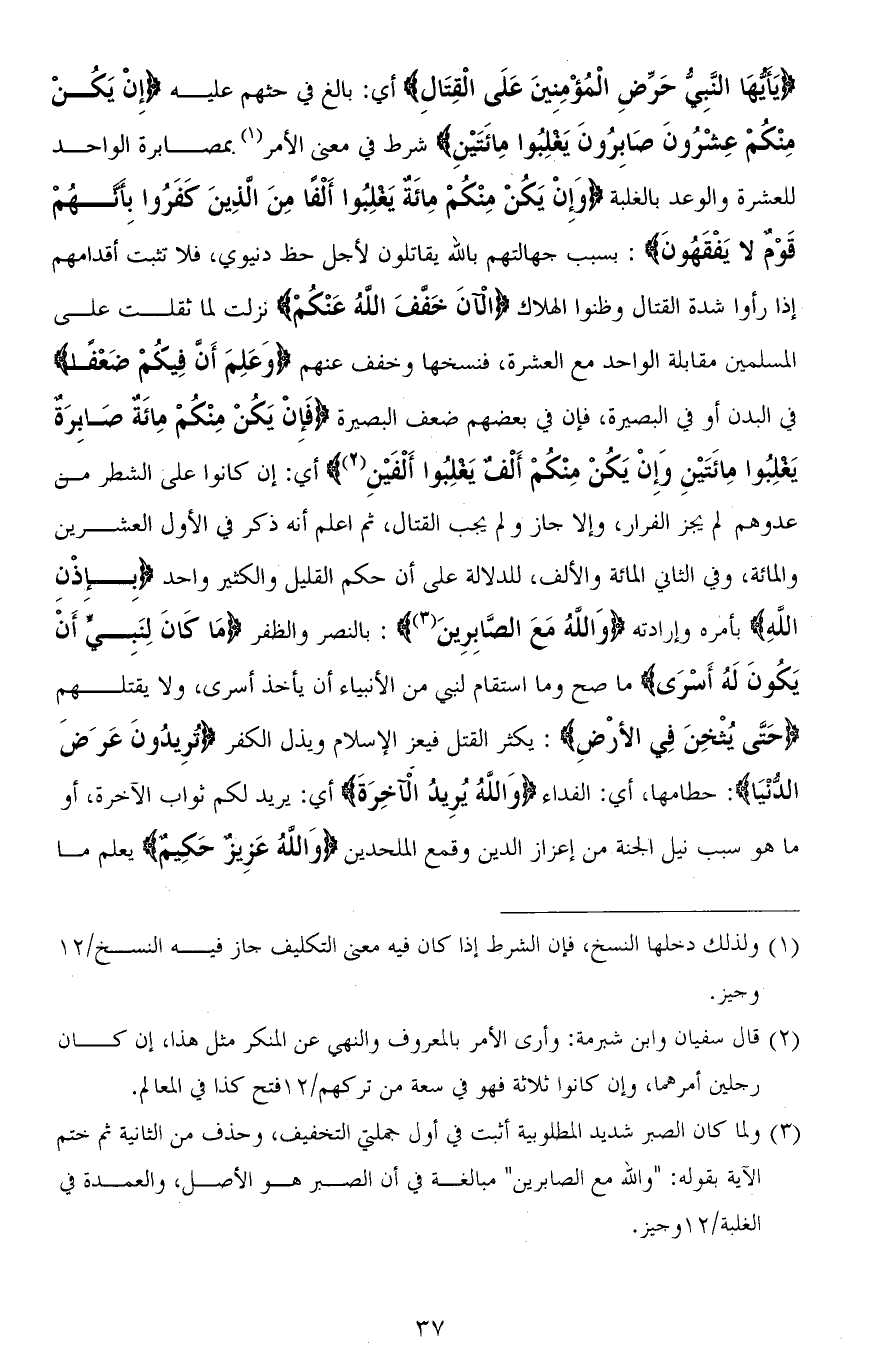 ﴿يَأَيُّهَا النَّبِيُّ حَرِّضِ الْمُؤْمِنِينَ عَلَى الْقِتَالِ﴾ أي: بالغ في حثهم عليه ﴿إِنْ يَكُنْ
مِنْكُمْ عِشْرُونَ صَابِرُونَ يَغْلِبُوا مِائَتَيْنِ﴾ شرط في معنى الأمر(١) بمصابرة الواحد
للعشرة والوعد بالغلبة ﴿وَإِنْ يَكُنْ مِنْكُمْ مِائَةٌ يَغْلِبُوا أَلْفًا مِنَ الَّذِينَ كَفَرُوا بِأَنَّهُمْ
قَوْمٌ لا يَفْقَهُونَ﴾ : بسبب جهالتهم بالله يقاتلون لأجل حظ دنيوي، فلا تثبت أقدامهم
إذا رأوا شدة القتال وظنوا الهلاك ﴿الْآنَ خَفَّفَ اللَّهُ عَنْكُمْ﴾ نزلت لما ثقلت على
المسلمين مقابلة الواحد مع العشرة، فنسخها وخفف عنهم ﴿وَعَلِمَ أَنَّ فِيكُمْ ضَعْفًا﴾
في البدن أو في البصيرة، فإن في بعضهم ضعف البصيرة ﴿فَإِنْ يَكُنْ مِنْكُمْ مِائَةٌ صَابِرَةٌ
يَغْلِبُوا مِائَتَيْنِ وَإِنْ يَكُنْ مِنْكُمْ أَلْفٌ يَغْلِبُوا أَلْفَيْنِ(٢)﴾ أي: إن كانوا على الشطر من
عدوهم لم يجز الفرار، وإلا جاز و لم يجب القتال، ثم اعلم أنه ذكر في الأول العشرين
والمائة، وفي الثاني المائة والألف، للدلالة على أن حكم القليل والكثير واحد ﴿بِإِذْنِ
اللَّهِ﴾ بأمره وإرادته ﴿وَاللَّهُ مَعَ الصَّابِرِينَ(٣)﴾ : بالنصر والظفر ﴿مَا كَانَ لِنَبِيٍّ أَنْ
يَكُونَ لَهُ أَسْرَى﴾ ما صح وما استقام لنبي من الأنبياء أن يأخذ أسرى، ولا يقتلهم
﴿حَتَّى يُثْخِنَ فِي الأَرْضِ﴾ : يكثر القتل فيعز الإسلام ويذل الكفر ﴿تُرِيدُونَ عَرَضَ
الدُّنْيَا﴾: حطامها، أي: الفداء ﴿وَاللَّهُ يُرِيدُ الْآخِرَةَ﴾ أي: يريد لكم ثواب الآخرة، أو
ما هو سبب نيل الجنة من إعزاز الدين وقمع الملحدين ﴿وَاللَّهُ عَزِيزٌ حَكِيمٌ﴾ يعلم ما
(١) ولذلك دخلها النسخ، فإن الشرط إذا كان فيه معنى التكليف جاز فيه النسخ/١٢
وجيز.
(٢) قال سفيان وابن شبرمة: وأرى الأمر بالمعروف والنهي عن المنكر مثل هذا، إن كان
رجلين أمرهما، وإن كانوا ثلاثة فهو في سعة من تركهم/١٢فتح كذا في المعالم.
(٣) ولما كان الصبر شديد المطلوبية أثبت في أول جملتي التخفيف، وحذف من الثانية ثم ختم
الآية بقوله: "والله مع الصابرين" مبالغة في أن الصبر هو الأصل، والعمدة في
الغلبة/١٢وجيز.
٣٧